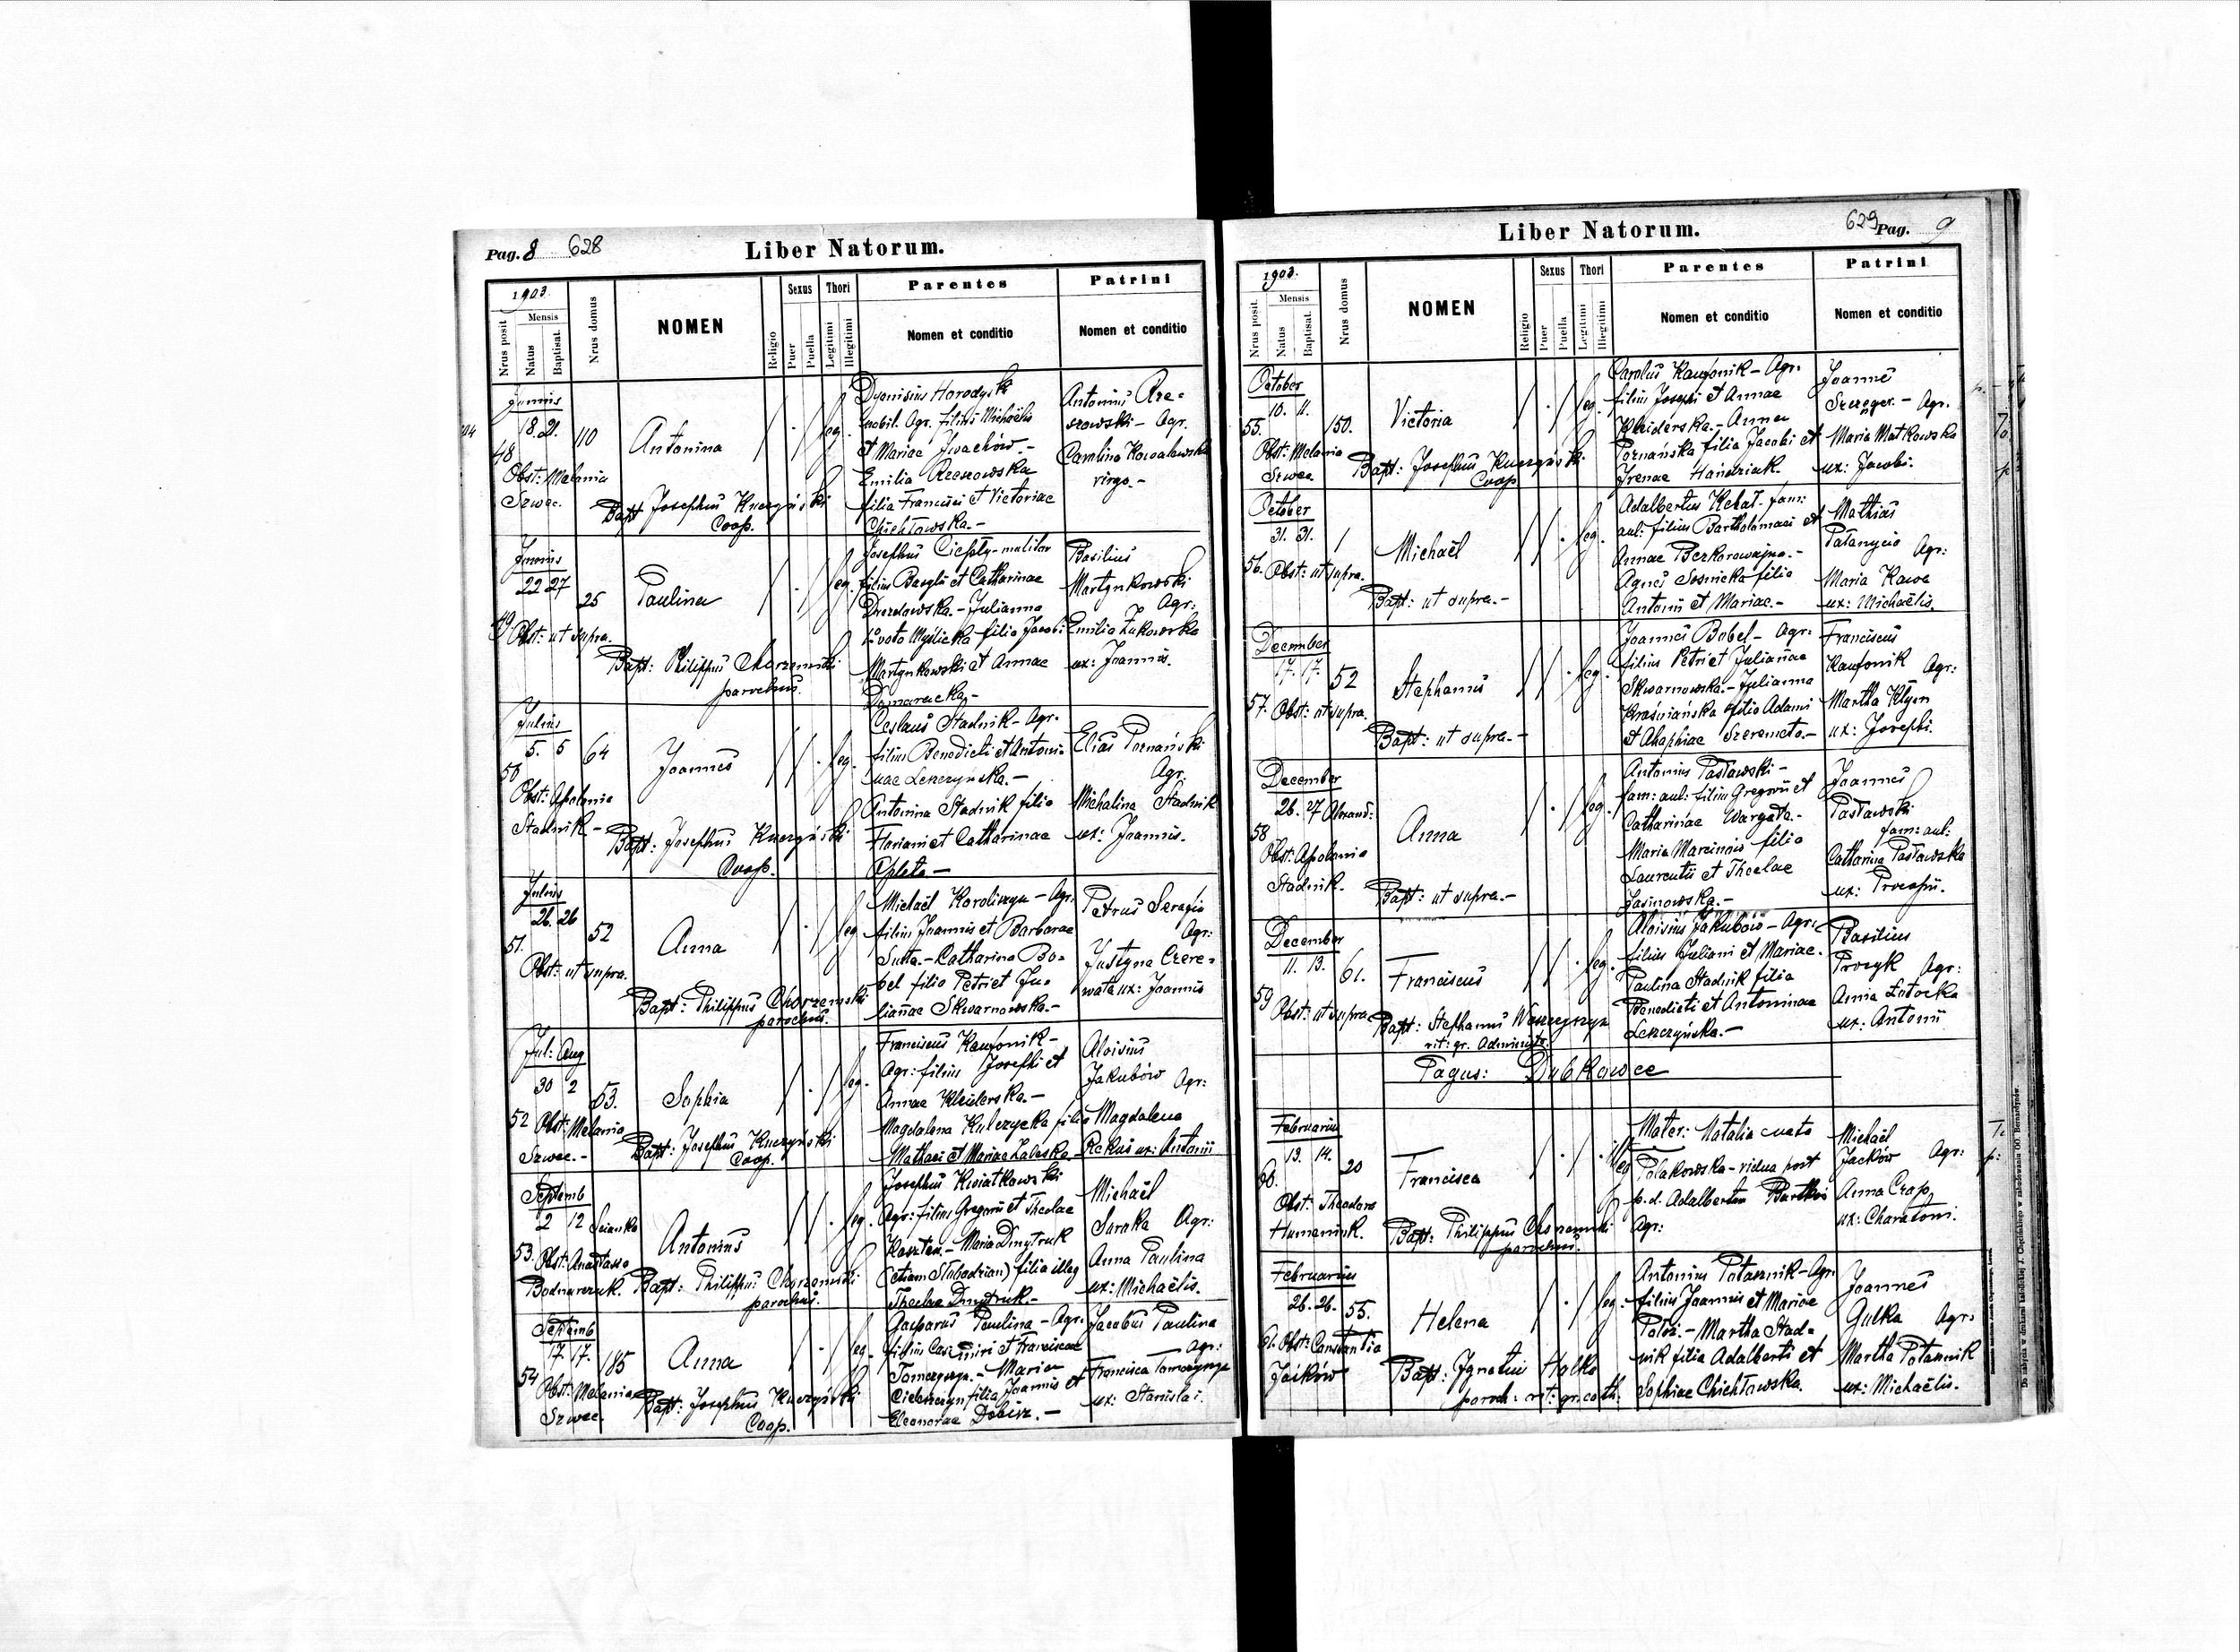 Pag. 8 628
Liber Natorum.
1903
Nrus posit
Mensis
Natus
Baptisat.
Nrus domus
NOMEN
Religio
Sexus
Puer
Puella
Thori
Legitimi
Illegitimi
Parentes
Nomen et conditio
Patrini
Nomen et conditio
Junius
18. 21. 110
48
Obst: Melania
Szwec.
Antonina
Bapt Josephus Kuczyński
Coop.
leg.
Dyonisius Horodyski
nobil. Agr. filius Michaëlis
et Mariae Iwachów. -
Emilia Rzeszowska
filia Francisci et Victoriae
Chichłowska. -
Antonius Rze=
szowski - Agr.
Carolina Kowalowska
virgo. -
Junius
22 27
25
49 Obst: ut supra.
Paulina
Bapt: Philippus Chorzemski
parochus.
leg.
Josephus Ciepły - molitor
filius Basylii et Catharinae
Drozdowska. - Julianna
1° voto Myślicka filia Jacobi
Martynkowski et Annae
Domaracka -
Basilius
Martynkowski
Agr:
Emilia Żukowska
ux: Joannis.
Julius
5. 5 64
50
Obst: Apolonia
Stadnik -
Joannes
Bapt: Josephus Kuczyński
Coop.
leg.
Ceslaus Stadnik - Agr.
filius Benedicti et Antoni=
nae Leszczyńska. -
Antonina Stadnik filia
Floriani et Catharinae
Opleta -
Elias Poznański
Agr.
Michalina Stadnik
ux: Joannis.
Julius
26 26
52
51.
Obst: ut supra.
Anna
Bapt: Philippus Chorzemski
parochus.
leg
Michaël Koroliszyn - Agr.
filius Joannis et Barbarae
Suta. - Catharina Bo=
bel filia Petri et Ju=
liannae Skwarnowska. -
Petrus Serafin
Agr:
Justyna Czere=
wata ux: Joannis
Jul: Aug
30 2
53.
52 Obst: Melania
Szwec. -
Sophia
Bapt: Josephus Kuczyński
Coop.
leg.
Franciscus Kaufonik -
Agr: filius Josephi et
Annae Kleiderska. -
Magdalena Kulczycka filia
Mathaei et Mariae Zaleska. -
Aloisius
Jakubów Agr:
Magdalena
Rekus ux: Antonii
Septemb
2 12
53. Obst: Anastasia
Bodnarczuk.
Antonius
Bapt: Philippus Chorzemski
parochus.
leg.
Josephus Kwiatkowski
Agr: filius Gregorii et Theclae
Kasztan. - Maria Dmytruk
(etiam Słabodzian) filia illeg
Theclae Dmytruk. -
Michaël
Saraka Agr:
Anna Paulina
ux: Michaëlis.
Septemb
17. 17. 185
54
Obst: Melania
Szwec.
Anna
Bapt: Josephus Kuczyński
Coop.
leg.
Gasparus Paulina - Agr.
filius Casimiri et Franciscae
Tomczyszyn. - Maria
filia Joannis et
Eleonorae Dobisz. -
Jacobus Paulina
Agr:
Francisca Tomczyszyn
ux: Stanislai.
Liber Natorum.
629 Pag. 9
1903.
Nrus posit.
Mensis
Natus
Baptisat.
Nrus domus
NOMEN
Religio
Sexus
Puer
Puella
Thori
Legitimi
Illegitimi
Parentes
Nomen et conditio
Patrini
Nomen et conditio
October
10. 11.
55. 150.
Obst: Melania
Szwec
Victoria
Bapt: Josephus Kuczyński
Coop
leg.
Carolus Kaufonik - Agr.
filius Josephi et Annae
Kleiderska. - Anna
Poznańska filia Jacobi et
Irenae Handziak.
Joannes
Szerszeń. - Agr.
Maria Matkowska
ux: Jacobi.
October
31. 31. 1
56. Obst: ut supra.
Michaël
Bapt: ut supra. -
leg.
Adalbertus Kehat. fam:
aul: filius Bartholomaei et
Annae Bezkorowajna. -
Agnes Sosnicka filia
Antonii et Mariae. -
Mathias
Patanycia Agr:
Maria Kawa
ux: Michaëlis.
December
17. 17. 52
57. Obst: ut supra.
Stephanus
Bapt: ut supra. -
leg.
Joannes Bobel - Agr:
filius Petri et Juliannae
Skwarnowska. - Julianna
Kraśniańska filia Adami
et Ahaphiae Szeremeta. -
Franciscus
Kaufonik Agr:
Martha Kłym
ux: Josephi.
December
26. 27
58
Obst: Apolonia
Stadnik.
Anna
Bapt: ut supra. -
leg.
Antonius Pasławski -
fam: aul: filius Gregorii et
Catharinae Wargata. -
Maria Marcinois filia
Laurentii et Theclae
Jasinowska. -
Joannes
Pasławski
fam: aul:
Catharina Pasławska
ux: Procopii.
December
11. 13. 61.
59 Obst: ut supra
Franciscus
Bapt: Stephanus Waszczyszyn
rit: gr. Administr.
leg.
Aloisius Jakubów - Agr:
filius Juliani et Mariae.
Paulina Stadnik filia
Benedicti et Antoninae
Leszczyńska. -
Basilius
Procyk Agr:
Anna Łotocka
ux: Antonii
Pagus: Dubkowce
Februarius
13. 14. 20
60.
Obst: Theodora
Humeniuk.
Francisca
Bapt: Philippus Chorzemski
parochus.
illeg
Mater: Natalia nata
Polakowska - vidua post
p. d. Adalbertum Bartkói
Agr:
Michaël
Jacków Agr:
Anna Czop
ux: Charatoni.
Februarius
26. 26. 55.
61. Obst: Constantia
Jaćków
Helena
Bapt: Ignatius Halko
paroch: rit: gr. cath.
leg:
Antonius Potasznik - Agr.
filius Joannis et Mariae
Martha Stad=
nik filia Adalberti et
Sophiae Chichłowska.
Joannes
Gulka Agr:
Martha Potasznik
ux: Michaëlis.